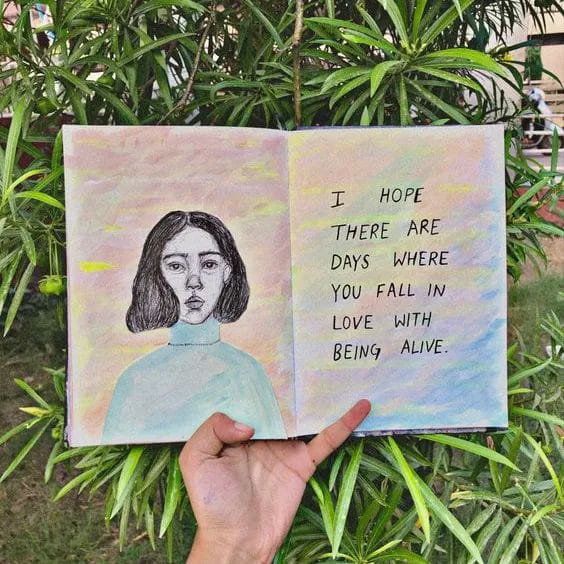 I HOPE
THERE ARE
DAYS WHERE
YOU FALL IN
LOVE WITH
BEING ALIVE.